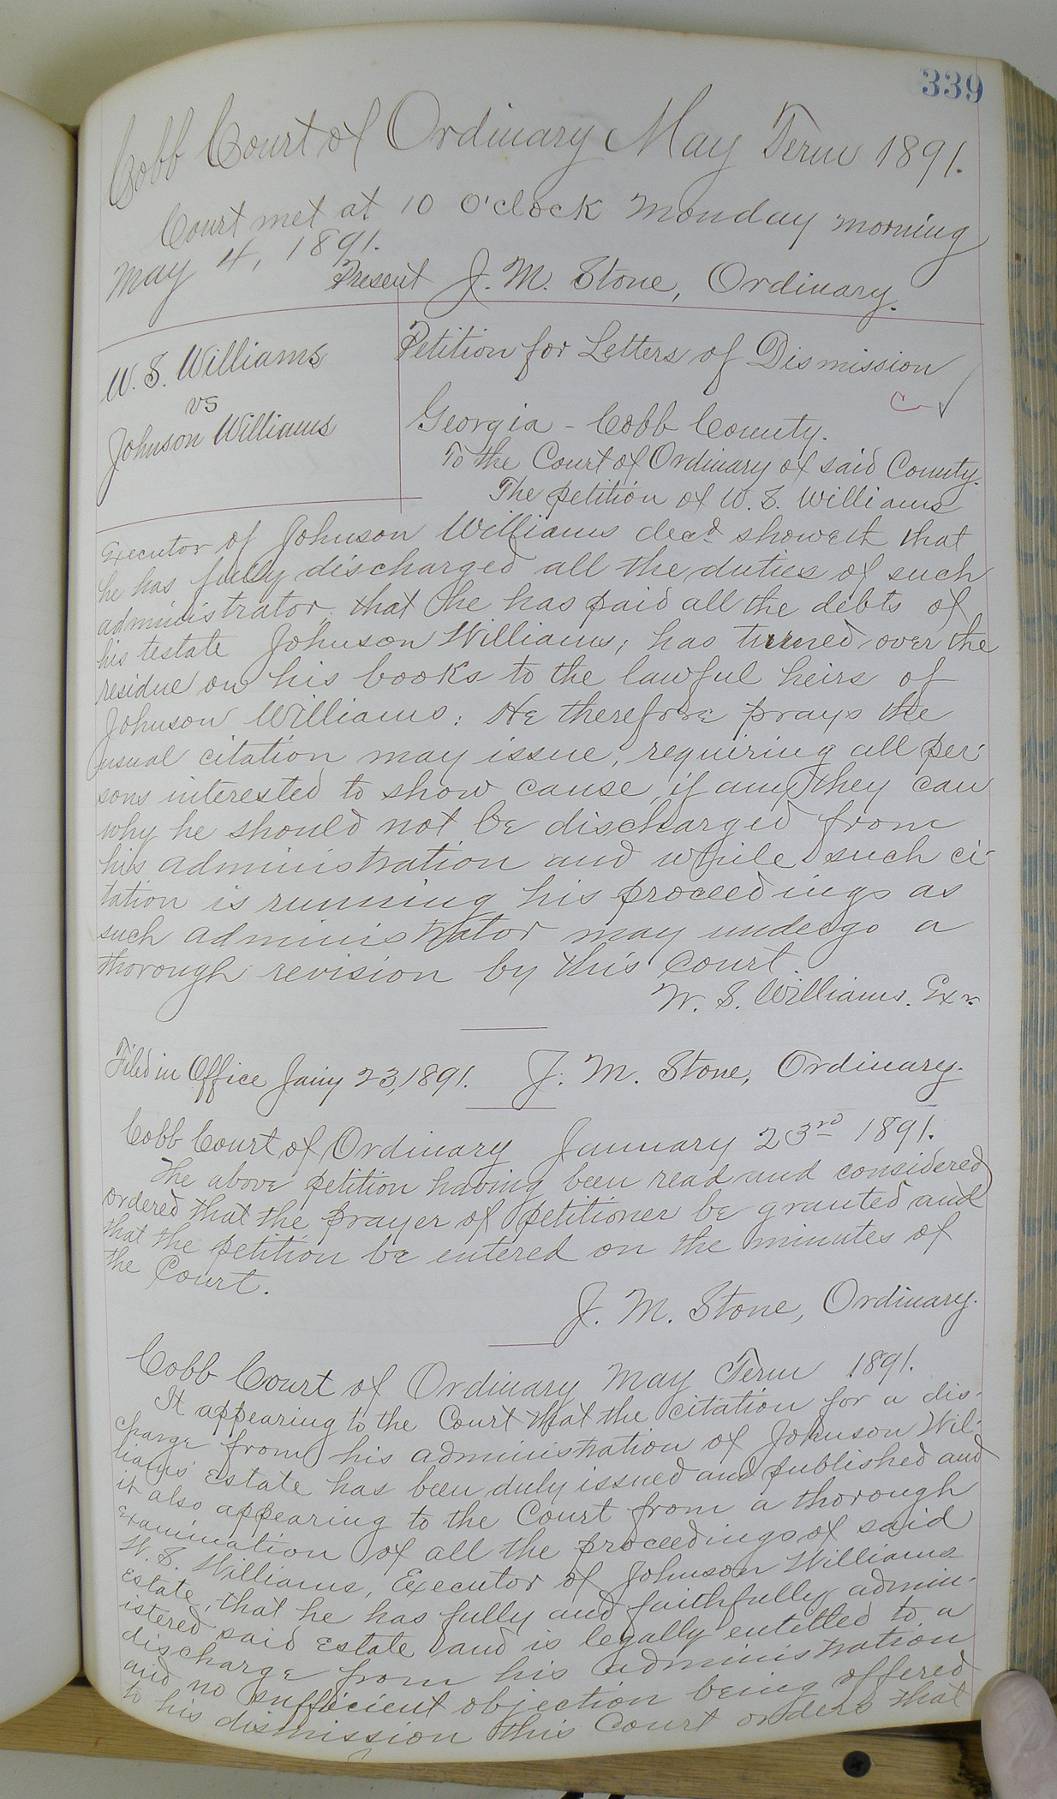 339
Cobb Court of Ordinary May Term 1891.
Court met at 10 O'clock Monday morning
May 4, 1891.
Present J. M. Stone, Ordinary.
W. S. Williams
vs
Johnson Williams
Petition for Letters of Dismission
Georgia - Cobb County.
To the Court of Ordinary of said County.
The petition of W. S. Williams
Executor of Johnson Williams decd. showeth that
he has fully discharged all the duties of such
administrator, that he has paid all the debts of
his testate Johnson Williams; has turned over the
residue on his books to the lawful heirs of
Johnson Williams: He therefore prays the
usual citation may issue, requiring all per-
sons interested to show cause, if any they can
why he should not be discharged from
his administration and while such ci-
tation is running his proceedings as
such administrator may undergo a
thorough revision by this court
W. S. Williams. Exr.
Filed in Office Jany 23, 1891. J. M. Stone, Ordinary.
Cobb Court of Ordinary January 23rd 1891.
The above petition having been read and considered
ordered that the prayer of petitioner be granted and
that the petition be entered on the minutes of
the Court.
J. M. Stone, Ordinary.
Cobb Court of Ordinary May Term 1891.
It appearing to the Court that the citation for a dis-
charge from his administration of Johnson Wil-
liams Estate has been duly issued and published and
it also appearing to the Court from a thorough
Examination of all the proceedings of said
W. S. Williams, Executor of Johnson Williams
Estate, that he has fully and faithfully admin-
istered said Estate and is legally entitled to a
discharge from his administration
and no sufficient objection being offered
to his dismission this Court orders that